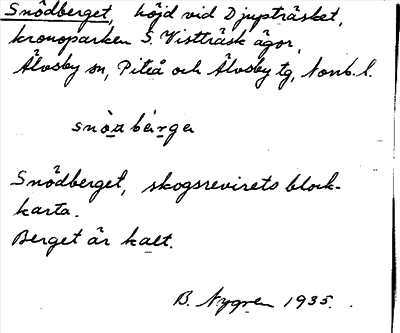 Snödberget, höjd vid Djupträsket,
kronoparken S. Vistträsk ägor,
Älvsby sn, Piteå och Älvsby tg, Nonb. l.
snö̀d bärga
Snödberget, skogsrevirets block-
karta.
Berget är kalt.
B. Nygren 1935.